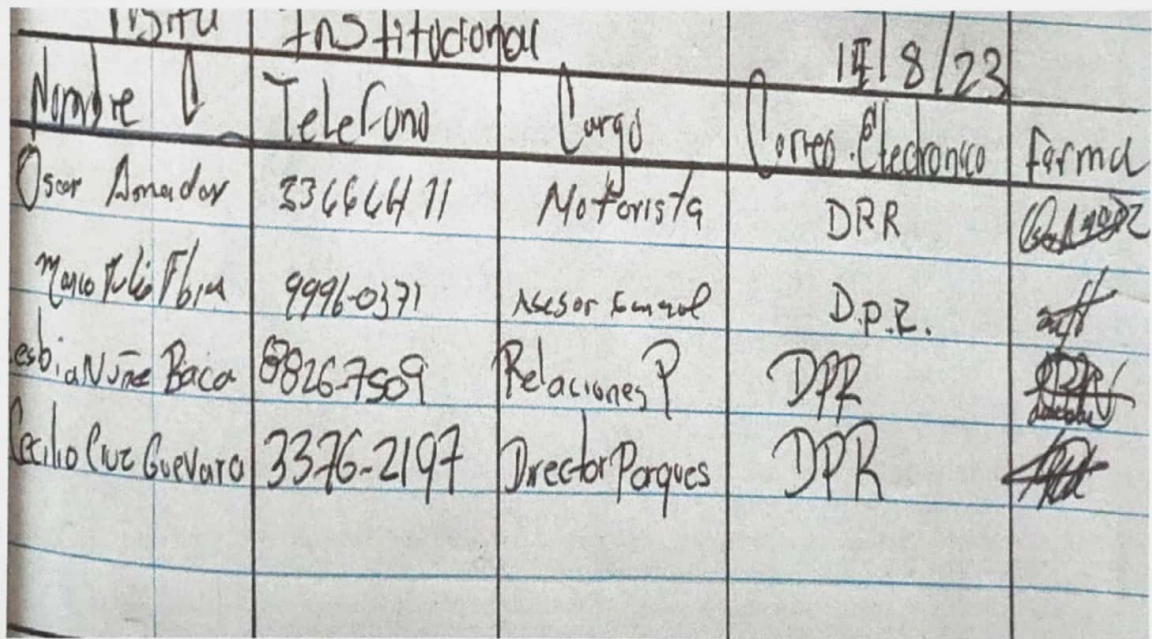 Institucional 8/23
Nombre Telefono Cargo Correo Electronico Firma
Oscar Amador Motorista DRR
Marco Tulio 9996-0371 Asesor D.P.R.
esbia Nuñe Baca 8826-7509 Relaciones P DPR
Cecilio Cruz Guevara 3376-2197 Director Parques DPR